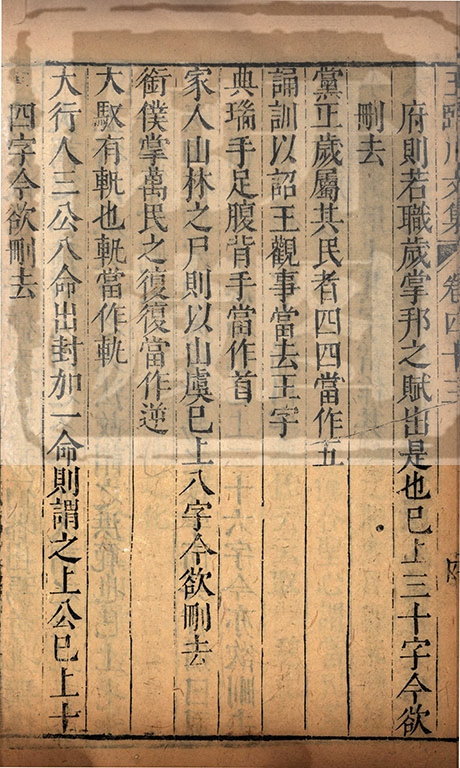 王臨川文集 卷四十三
府則若職歲掌邦之賦出是也已上三十字今欲
刪去
黨正歲屬其民者四四當作五
誦訓以詔王觀事當去王字
典瑞手足腹背手當作首
家人山林之尸則以山虞已上八字今欲刪去
銜僕掌萬民之復復當作逆
大馭有軓也軓當作軌
大行人三公八命出封加一命則謂之上公已上十
四字今欲刪去